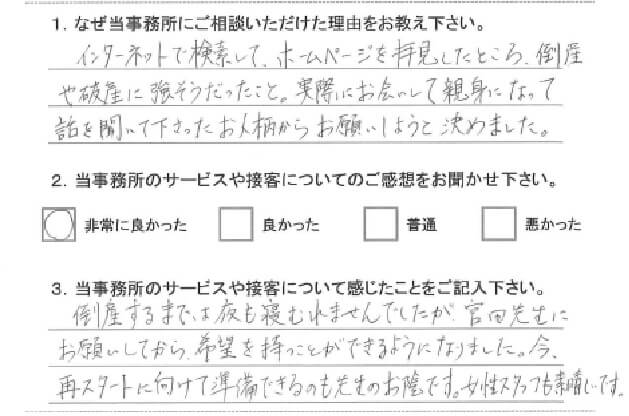 1. なぜ当事務所にご相談いただけた理由をお教え下さい。
インターネットで検索して、ホームページを拝見したところ、倒産
や破産に強そうだったこと。実際にお会いして親身になって
話を聞いて下さったお人柄からお願いしようと決めました。
2. 当事務所のサービスや接客についてのご感想をお聞かせ下さい。
非常に良かった 良かった 普通 悪かった
3. 当事務所のサービスや接客について感じたことをご記入下さい。
倒産するまでは夜も寝むれませんでしたが、宮田先生に
お願いしてから、希望を持つことができるようになりました。今、
再スタートに向けて準備できるのも先生のお陰です。女性スタッフも素晴しいです。